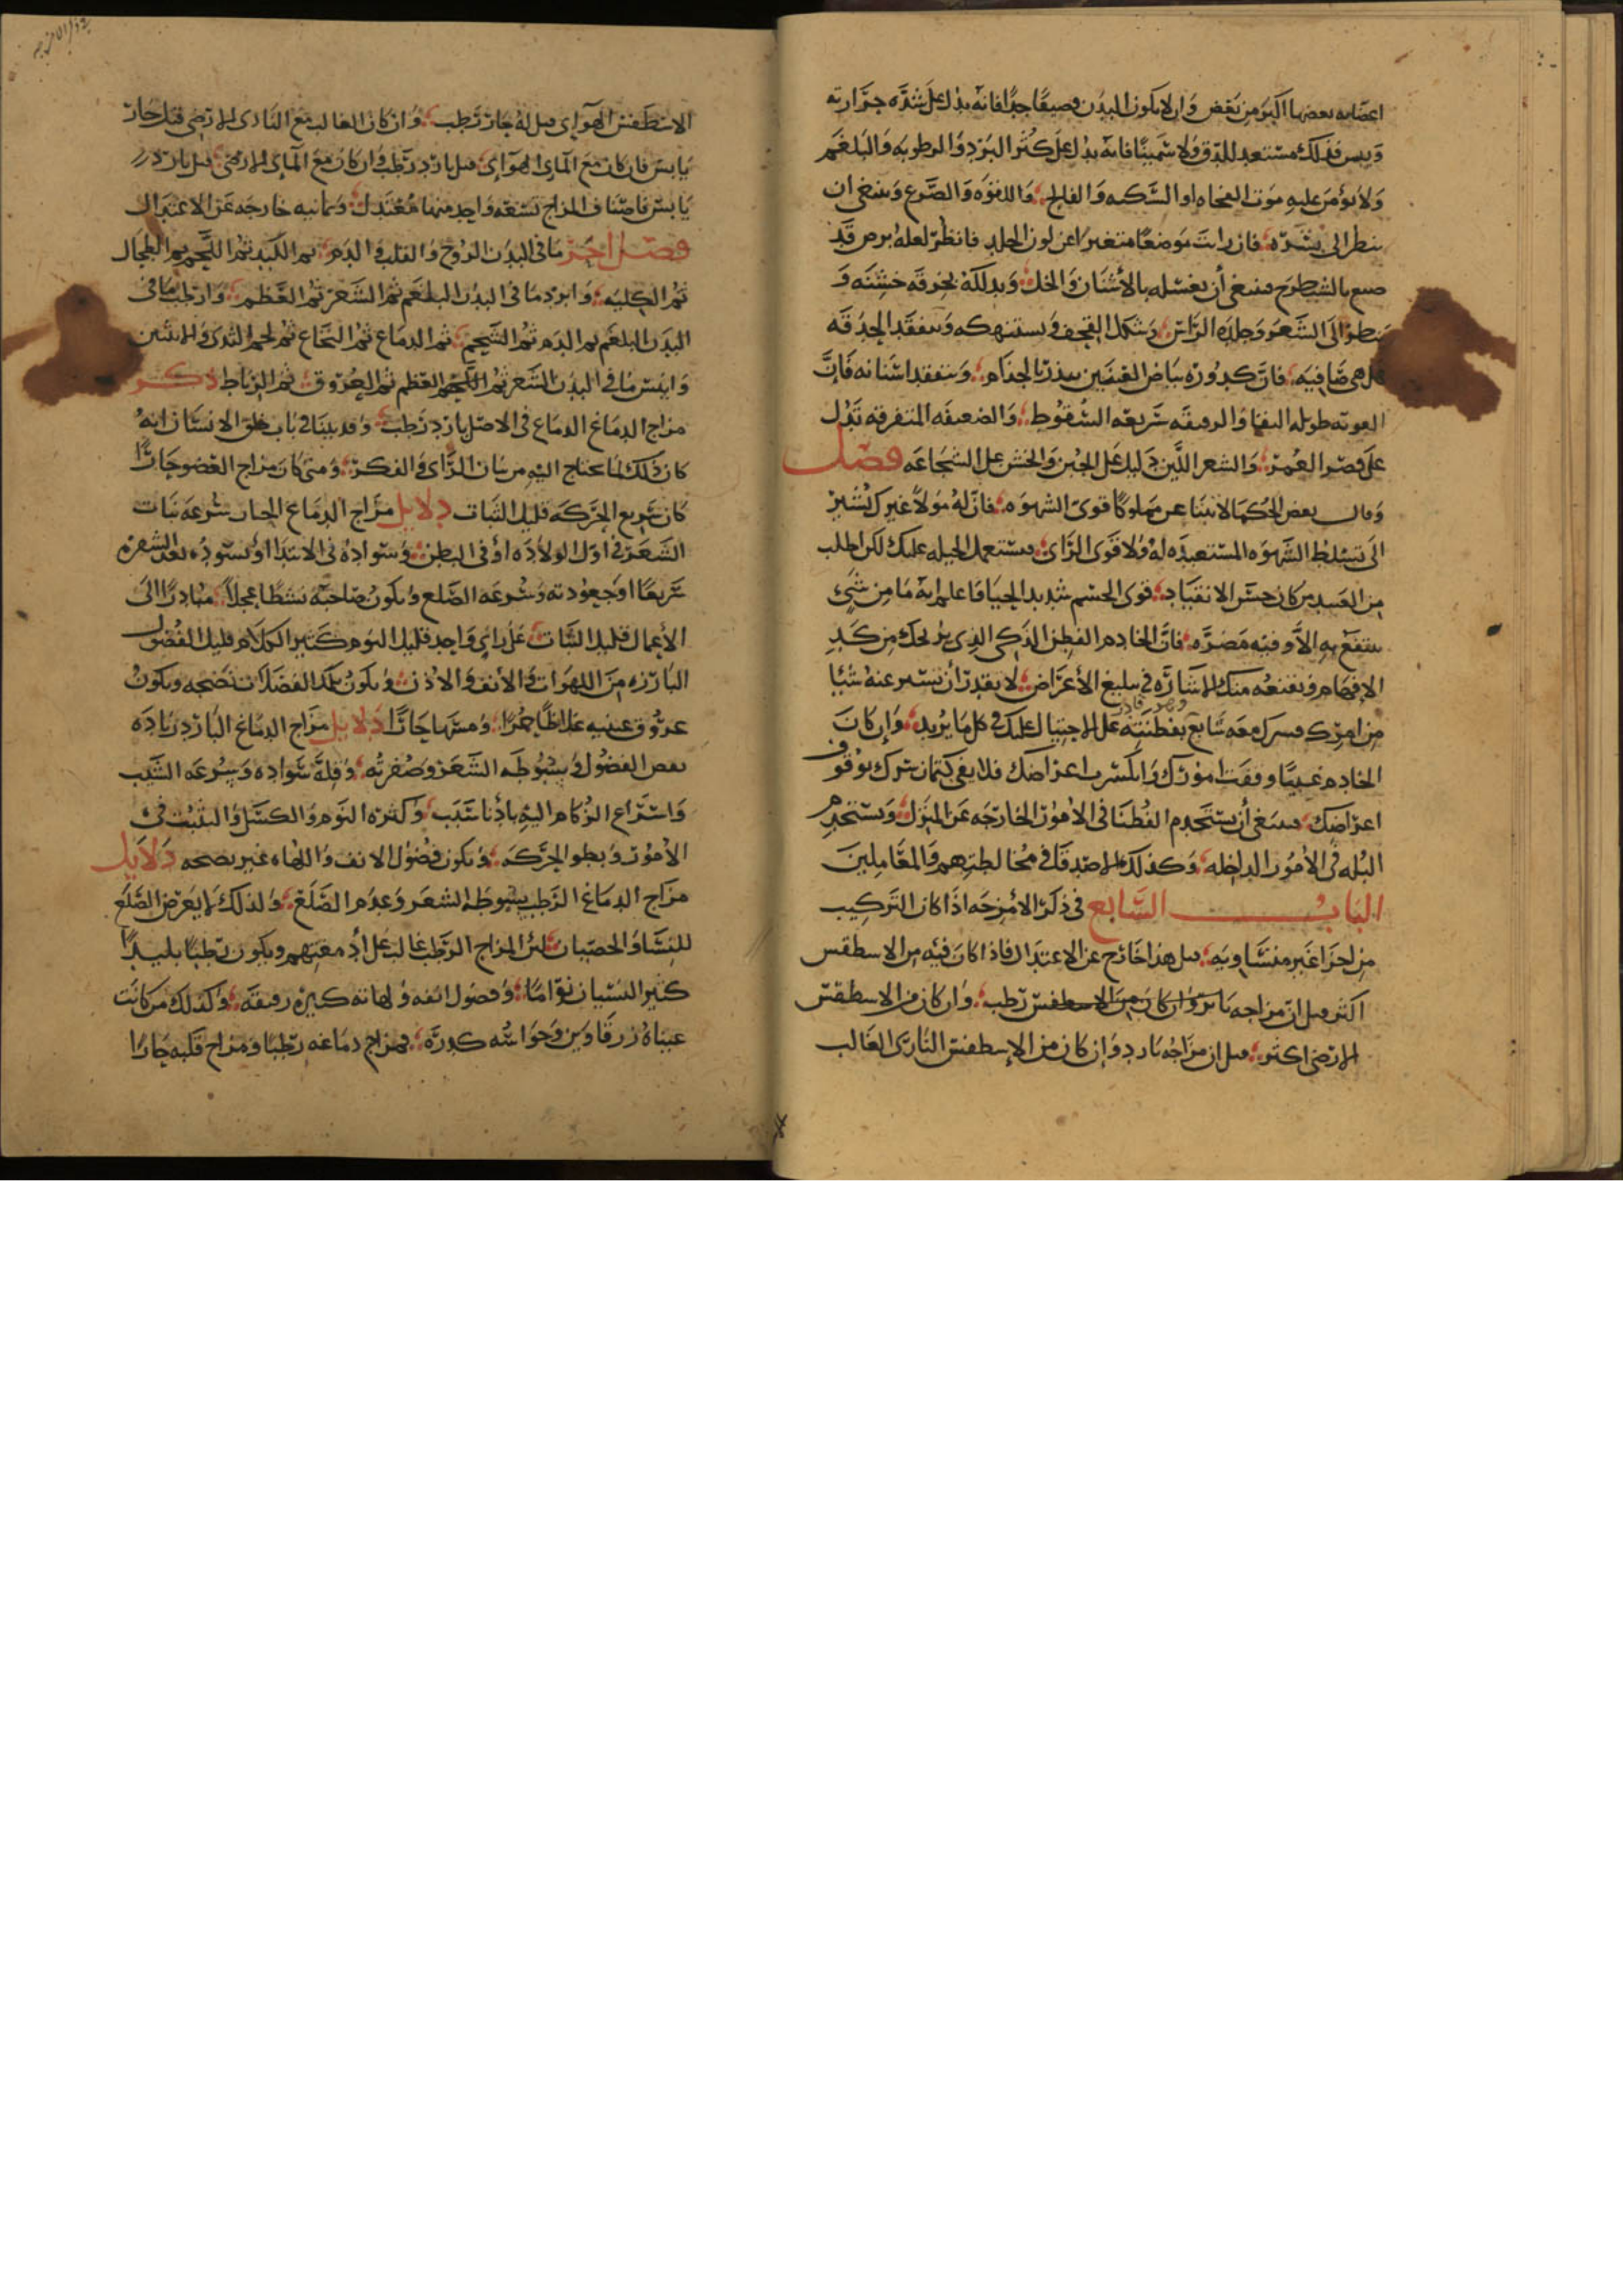 اعضايه بعضها اكبر من بعض وان لا يكون البدن قصيفا جدا فانه يدل على شدة حرارته
ويبس فذلك مستعد للدق ولا سمينا فانه يدل على كثر البرد والرطوبه والبلغم
ولا يؤمن عليه موت الفجاه او السكته والفالج واللقوه والصرع وينبغي ان
ينظر الى بشرته فان رات موضعا متغيرا عن لون الجلد فانظر لعله برص قد
صبع بالشيطرج فينبغي أن يغسله بالأشنان والخل ويدلكه بخرقه خشنه و
ينظر الى الشعر وجلده الراس وشكل القحف ويستنهكه ويتفقد الحدقه
هل هي صافيه فان كدورة بياض العينين ينذر بالجذام ويتفقد اسنانه فان
القويه طويله البقا والرقيقه سريعه السقوط والضعيفه المتفرقه تدل
على قصر العمر والشعر اللين دليل على الجبن والخشن على الشجاعه فصل
وقال بعض الحكما لا تبتاعن مملوكا قوى الشهوه فان له مولا غيرك تشير
الى تسلط الشهوه المستعبده له ولا قوى الراى فيستعمل الحيله عليك لكن اطلب
من العبيد من كان حسن الانقياد قوى الجسم شديد الحيا فاعلم انه ما من شئ
ينتفع به الا وفيه مضره فان الخادم الفطن الذكي الذي يريحك من كد
الإفهام ويقنعه منك الاشاره في تبليغ الأغراض لا يقدر أن تستر عنه شئيا
من امرك فسرك معه شايع بفطنته وهو قادر على الاحتيال عليك في كل ما يريد وإن كان
الخادم غبيا وقفت امورك وانكسرت اغراضك فلا يفي كتمان سرك بوقوف
اغراضك فينبغي أن يستخدم الفطنا في الامور الخارجه عن المنزل ويستخدم
البله في الأمور الداخله وكذلك الاصدقا في مخالطتهم والمعاملين
الباب السابع في ذكر الأمزجه اذا كان التركيب
من اجزا غير متساويه قيل هذا خارج عن الاعتدال فاذا كان فيه من الاسطقس
اكثر قيل ان مزاجه وان كان من الاسطقس رطب وان كان من الاسطقس
الارضي اكثر قيل ان مزاجه بارد وإن كان من الإسطقس النارى الغالب
الاسطقس الهوآى قيل له حار رطب وان كان الغالب مع النارى الارضى قيل حار
يابس فان كان مع المآى الهوآى قيل بارد رطب وان كان مع المآى الارضي قيل بارد
يابس فاصناف المزاج تسعه واحد منها معتدل وثمانيه خارجه عن الاعتدال
فصل احر ما فى البدن الروح والقلب والدم ثم الكبد ثم اللحم ثم الطحال
ثم الكليه وابرد ما في البدن البلغم ثم الشعر ثم العظم وارطب ما في
البدن البلغم ثم الدم ثم الشحم ثم الدماغ ثم النخاع ثم لحم الثدى والانثيين
وايبس ما في البدن الشعر ثم العظم ثم العروق ثم الرباط ذكر
مزاج الدماغ الدماغ في الاصل بارد رطب وقد بينا في باب خلق الانسان انه
كان ذلك لما يحتاج اليه من بيان الراى والفكر ومتى كان مزاج العضو حارا
كان سريع الحركه قليل الثبات دلايل مزاج الدماغ الحار سرعه نبات
الشعر في اول الولاده أو في البطن وسواده في الابتدا او يسود بعد الشقره
سريعا او جعودته وسرعه الصلع ويكون صاحبه نشطا عجلا مبادرا الى
الأعمال قليل الثبات على راي واحد قليل النوم كثير الكلام قليل الفضول
البارزه من اللهوات والأنف والاذن ويكون تلك الفضلات نضجه ويكون
عروق عينيه غلاظا حمرا ومسها حارا دلايل مزاج الدماغ البارد زياده
بعض الفضول وسبوطه الشعر وصفرته وقله سواده وسرعه الشيب
واسراع الزكام اليه بأدنا سبب وكثره النوم والكسل والتثبت في
الأمور وبطو الحركه ويكون فضول الانف واللهاه غير نضجه دلايل
مزاج الدماغ الرطب سبوطه الشعر وعدم الصلع ولذلك لا يعرض الصلع
للنسا والخصيان لأن المزاج الرطب غالب على أدمغتهم ويكون رطبا بليدا
كثير النسيان نواما وفضول انفه ولهاته كثيره رقيقه وكذلك من كانت
عيناه زرقاوين وحواسه كدره فمزاج دماغه رطبا ومزاج قلبه حارا